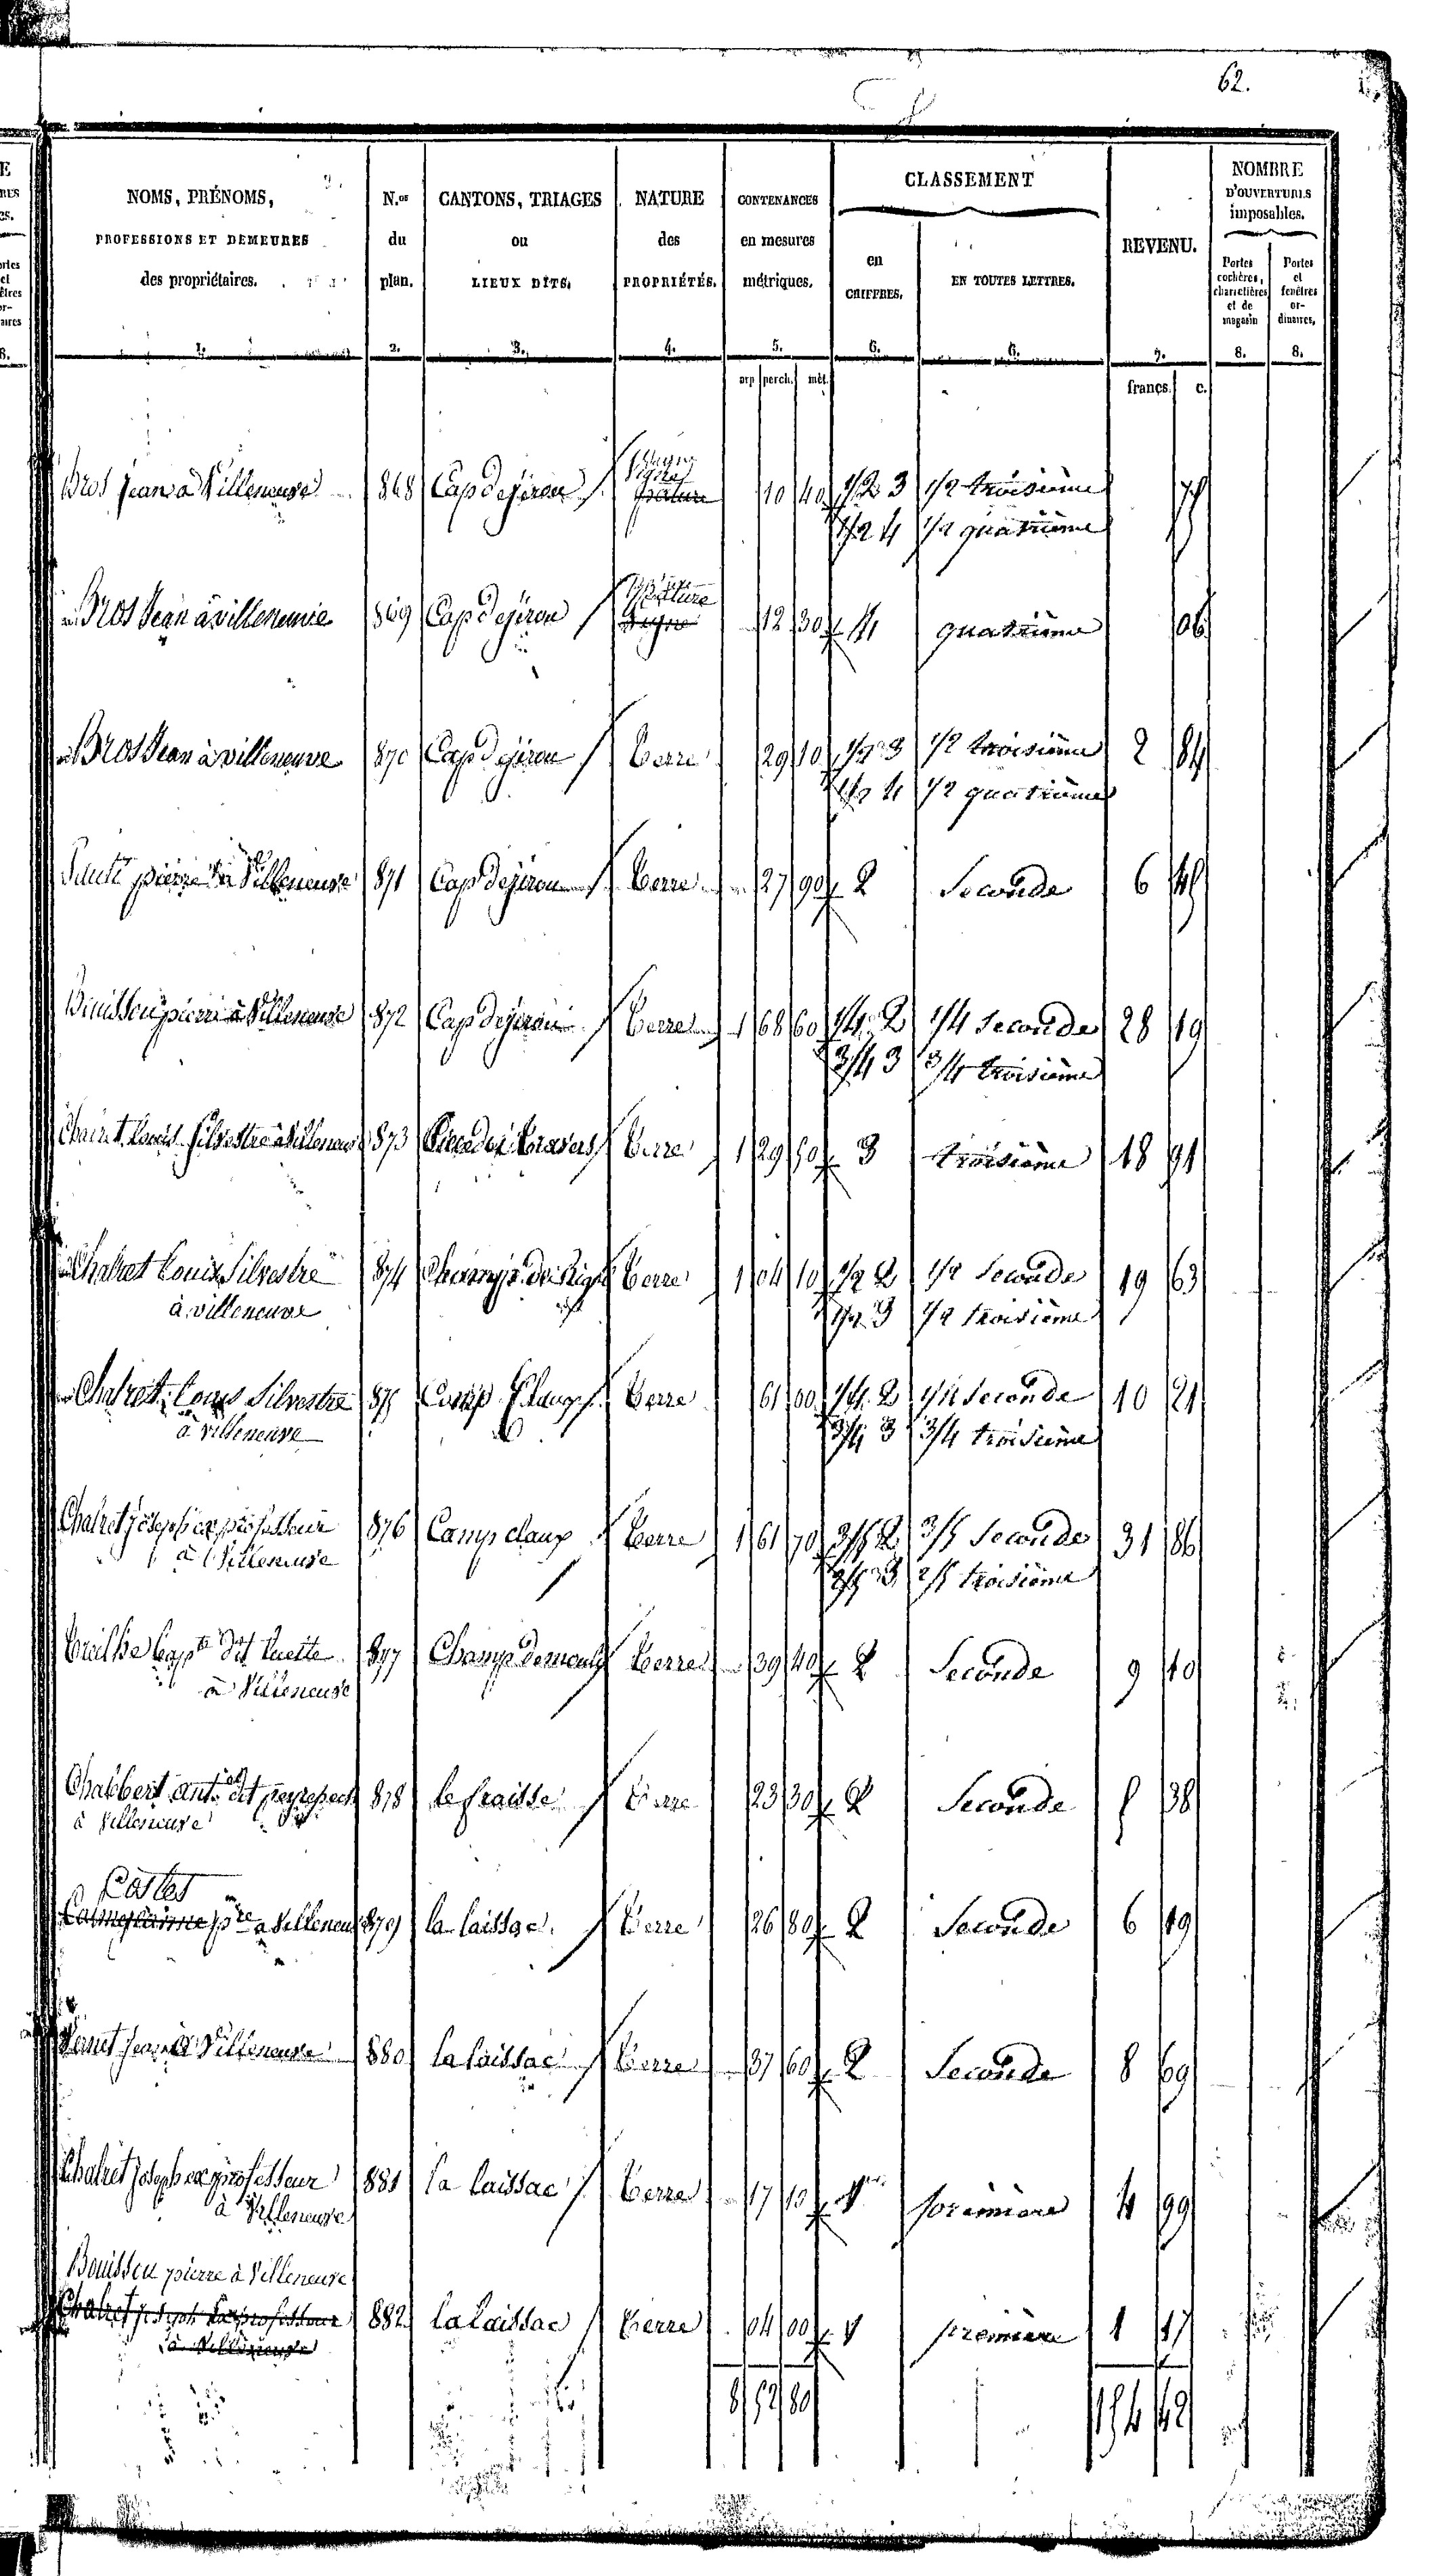 62.
NOMS, PRÉNOMS, PROFESSIONS ET DEMEURES des propriétaires. 1.
N.os du plan. 2.
CANTONS, TRIAGES ou LIEUX DITS. 3.
NATURE des PROPRIÉTÉS. 4.
CONTENANCES en mesures métriques. 5.
CLASSEMENT
en CHIFFRES. 6.
EN TOUTES LETTRES. 6.
REVENU. 7.
NOMBRE D'OUVERTURES imposables.
Portes cochères, charretières et de magasin 8.
Portes et fenêtres ordinaires. 8.
arp perch. mèt. francs. c.
Bros Jean à Villeneuve 868 Cap dejirou Vigne pature 10 40 1/2 3 1/2 troisième 75
1/2 4 1/2 quatrième
Bros Jean à villeneuve 869 Cap dejirou Pature Vigne 12 30 4 quatrième 06
Bros Jean à villeneuve 870 Cap dejirou Terre 29 10 1/2 3 1/2 troisième 2 84
1/2 4 1/2 quatrième
pierre à Villeneuve 871 Cap dejirou Terre 27 90 2 Seconde 6 45
Bouissou pierre à Villeneuve 872 Cap dejirou Terre 1 68 60 1/4 2 1/4 Seconde 28 19
3/4 3 3/4 troisième
Chalret Louis Silvestre à Villeneuve 873 Travers Terre 1 29 50 3 troisième 18 91
Chalret Louis Silvestre 874 Champ Terre 1 04 10 1/2 2 1/2 Seconde 19 63
à villeneuve 1/2 3 1/2 troisième
Chalret Louis Silvestre 875 Camp Claux Terre 61 00 1/4 2 1/4 Seconde 10 21
à villeneuve 3/4 3 3/4 troisième
Chalret joseph ex professeur 876 Camp claux Terre 1 61 70 3/5 2 3/5 Seconde 31 86
à Villeneuve 2/5 3 2/5 troisième
dit 877 Champ Terre 39 40 2 Seconde 9 10
à Villeneuve
Chabbert ant. dit 878 le fraisse Terre 23 30 2 Seconde 5 38
à Villeneuve
Costes
pre à Villeneuve 879 la laissac Terre 26 80 2 Seconde 6 19
Vernet Jean à Villeneuve 880 la laissac Terre 37 60 2 Seconde 8 69
Chalret joseph ex professeur 881 la laissac Terre 17 10 1 première 4 99
à Villeneuve
Bouissou pierre à Villeneuve
Chalret joseph Ex professeur 882 la laissac Terre 04 00 1 première 1 17
à Villeneuve
8 52 80 154 42